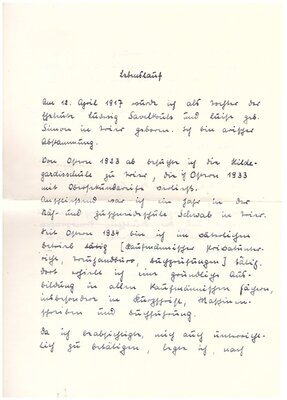 Lebenslauf
Am 12. April 1917 wurde ich als Tochter der
Eheleute Ludwig Savelkouls und Luise geb.
Simon in Trier geboren. Ich bin arischer
Abstammung.
Von Ostern 1923 ab besuchte ich die Hilde-
gardisschule zu Trier, die ich Ostern 1933
mit Obersekundareife verließ.
Anschließend war ich ein Jahr in der
Näh- und Zuschneideschule Schwab in Trier.
Seit Ostern 1934 bin ich im väterlichen
Betrieb tätig [Kaufmännischer Privatunter-
richt, Treuhandbüro, Buchprüfungen] tätig.
Dort erhielt ich eine gründliche Aus-
bildung in allen kaufmännischen Fächern,
insbesondere in Kurzschrift, Maschinen-
schreiben und Buchführung.
Da ich beabsichtige, mich auch unterricht-
lich zu betätigen, legte ich, nach